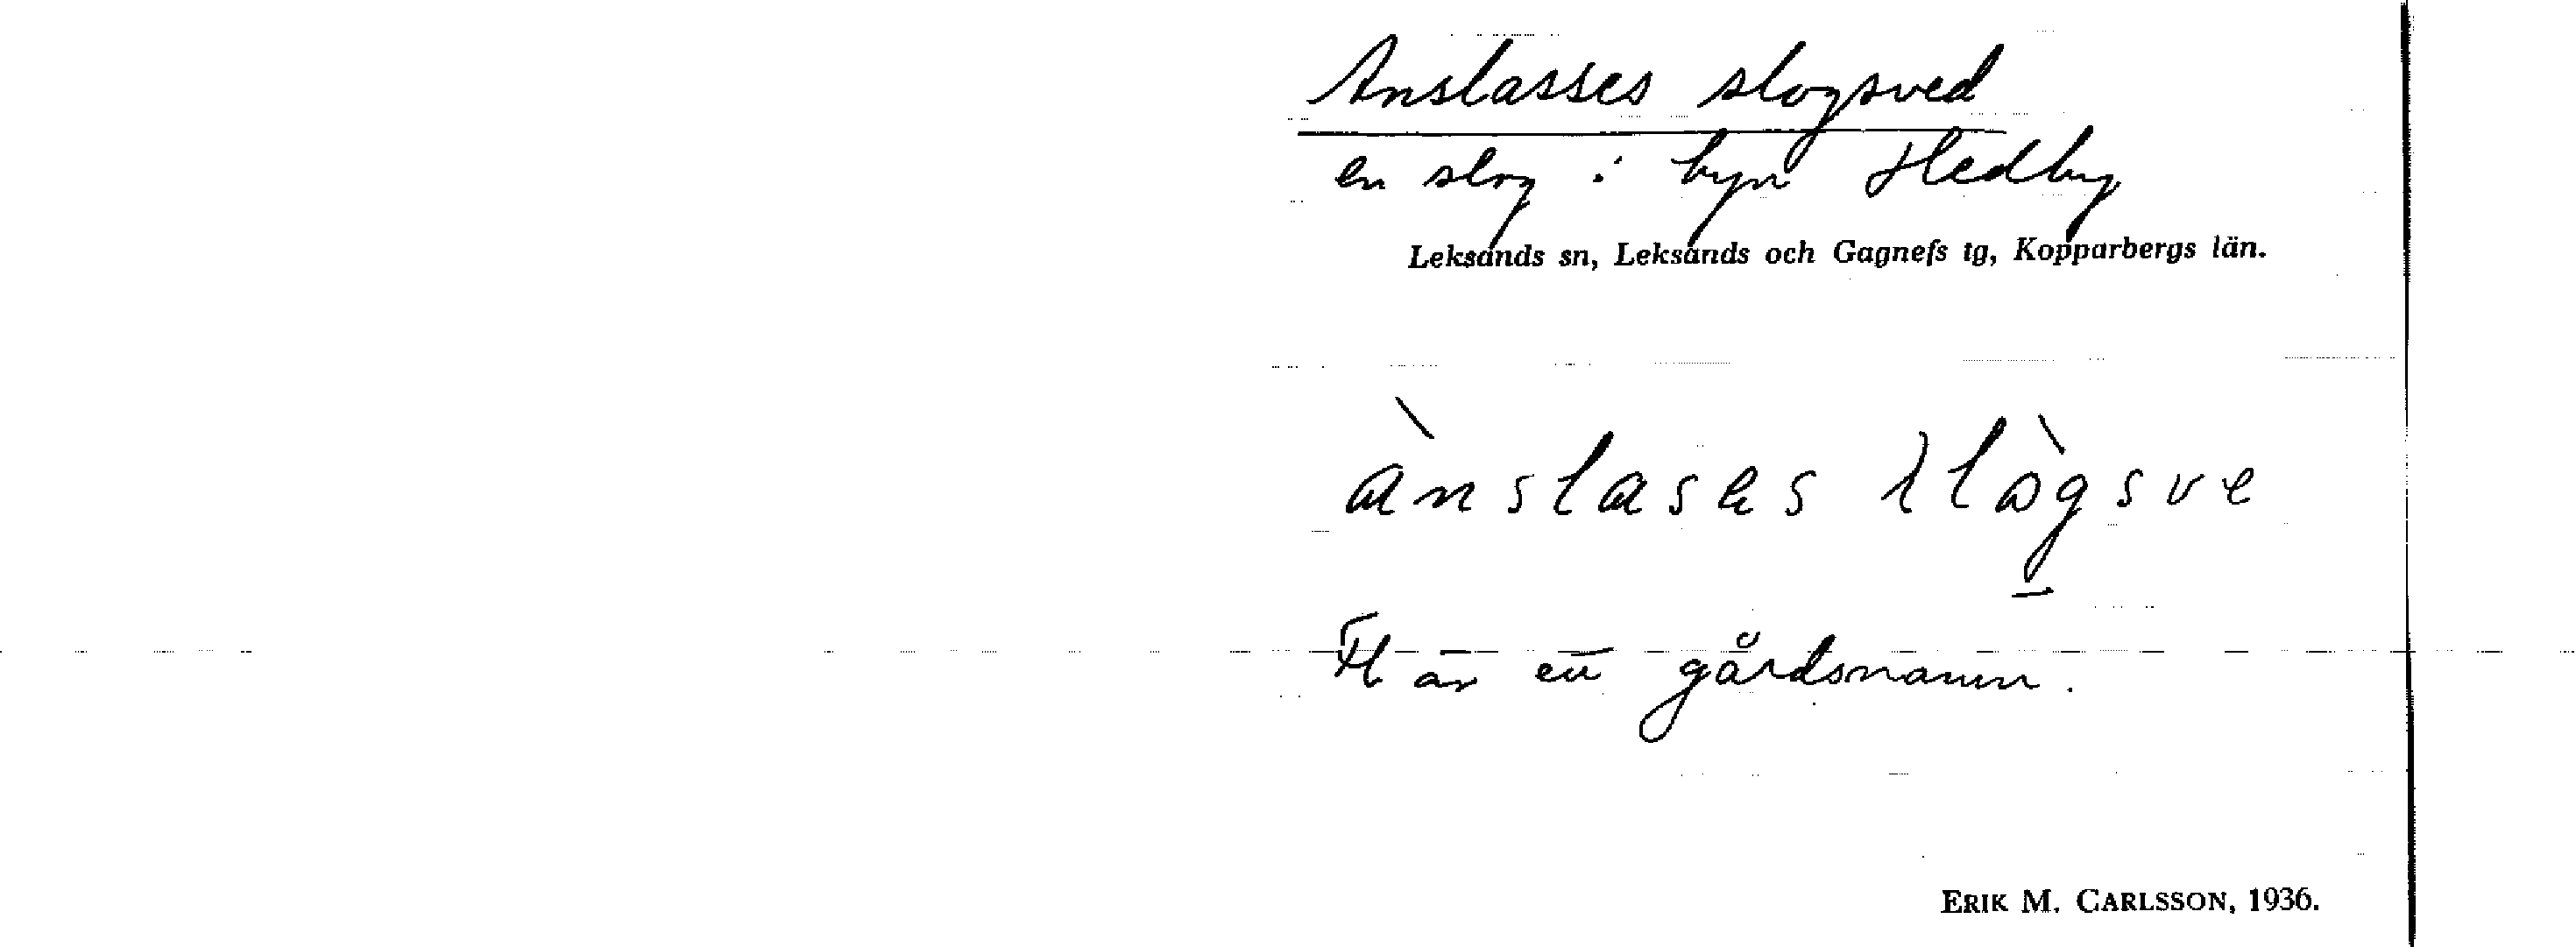 Anslasses slogsved
en slog i byn Hedby
Leksands sn, Leksands och Gagnefs tg, Kopparbergs län.
ànslases slògsve
Fl är ett gårdsnamn.
ERIK M. CARLSSON, 1936.